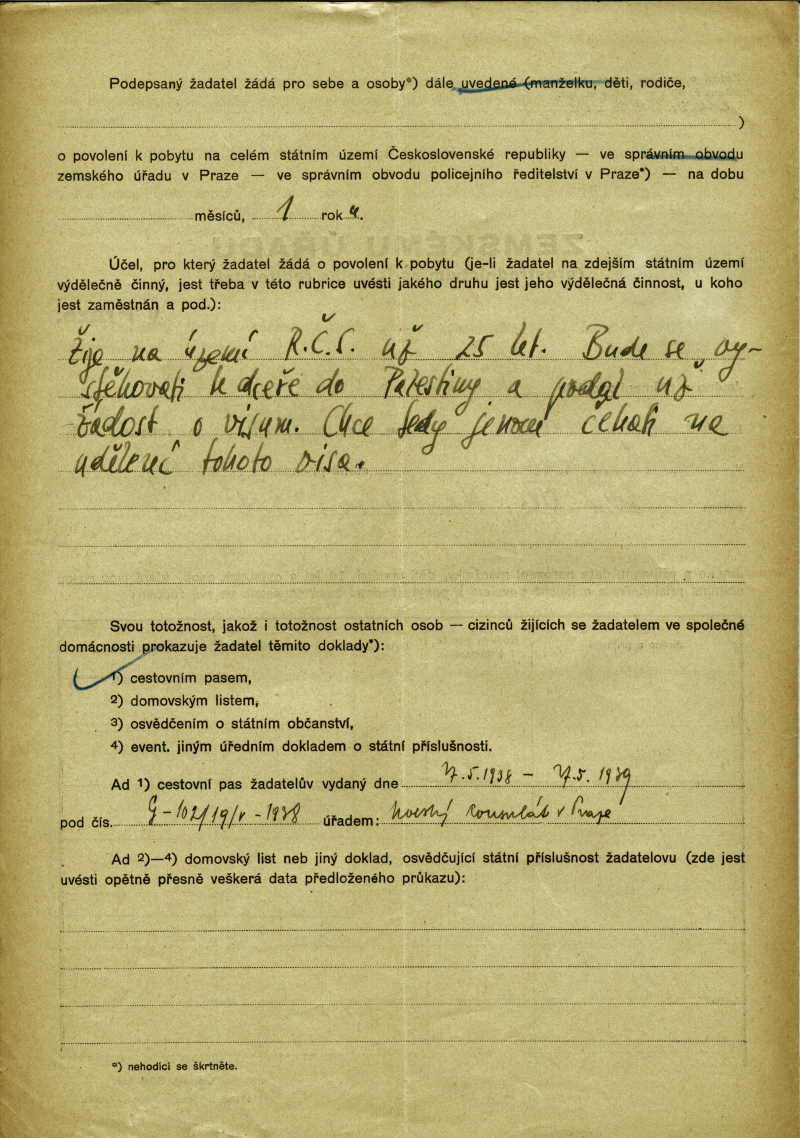 Podepsaný žadatel žádá pro sebe a osoby*) dále uvedené (manželku, děti, rodiče,
)
o povolení k pobytu na celém státním území Československé republiky — ve správním obvodu
zemského úřadu v Praze — ve správním obvodu policejního ředitelství v Praze*) — na dobu
měsíců, 1 rok
Účel, pro který žadatel žádá o povolení k pobytu (je-li žadatel na zdejším státním území
výdělečně činný, jest třeba v této rubrice uvésti jakého druhu jest jeho výdělečná činnost, u koho
jest zaměstnán a pod.):
Žije na území R.Č.S. už 25 let. Bude se vy-
stěhovati k dceři do Palestiny a podal už
žádost o visum. Chce tedy jenom čekati na
udělení tohoto visa.
Svou totožnost, jakož i totožnost ostatních osob — cizinců žijících se žadatelem ve společné
domácnosti prokazuje žadatel těmito doklady*):
1) cestovním pasem,
2) domovským listem,
3) osvědčením o státním občanství,
4) event. jiným úředním dokladem o státní příslušnosti.
Ad 1) cestovní pas žadatelův vydaný dne 7.5.1938 – 7.5.1939
pod čís. úřadem: v Praze
Ad 2)—4) domovský list neb jiný doklad, osvědčující státní příslušnost žadatelovu (zde jest
uvésti opětně přesně veškerá data předloženého průkazu):
*) nehodící se škrtněte.